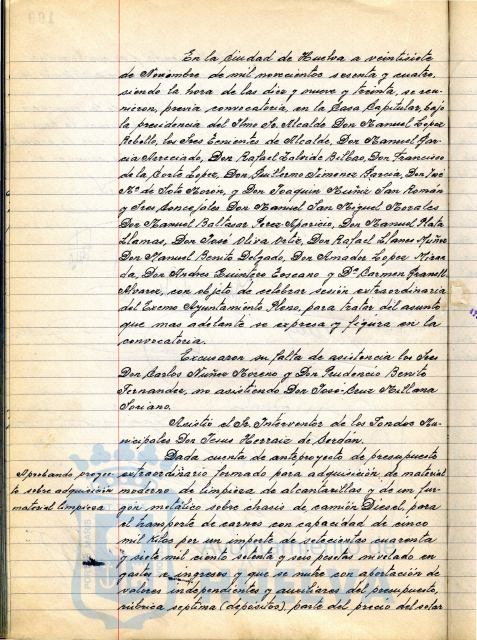 En la Ciudad de Huelva a veintisiete
de Noviembre de mil novecientos sesenta y cuatro,
siendo la hora de las diez y nueve y treinta, se reu-
nieron, previa convocatoria, en la Casa Capitular, bajo
la presidencia del Ilmo Sr. Alcalde Don Manuel Lopez
Rebollo, los Sres Tenientes de Alcalde, Don Manuel Gar-
cia Don Rafael Bilbao, Don Francisco
de la Corte Lopez, Don Guillermo Jimenez Garcia, Don José
Mª de Soto Morón, y Don Joaquin Muñiz San Román
y Sres Concejales Don Manuel San Miguel Morales
Don Manuel Baltasar Perez Aparicio, Don Manuel Plata
Llamas, Don José Oliva Ortiz, Don Rafael Llanes Muñoz
Don Manuel Benito Delgado, Don Amador Lopez Miran
da, Don Andres Quintero Toscano y Dª Carmen
Alvarez, con objeto de celebrar sesión extraordinaria
del Excmo Ayuntamiento Pleno, para tratar del asunto
que mas adelante se expresa y figura en la
convocatoria.
Excusaron su falta de asistencia los Sres
Don Carlos Nuñez Moreno y Don Prudencio Benito
Fernandez, no asistiendo Don José-Cruz Millana
Soriano.
Asistió el Sr. Interventor de los Fondos Mu-
nicipales Don Jesus Herraiz de Serdán.
Dada cuenta de anteproyecto de presupuesto
Aprobando proyec-
to sobre adquisición
material limpieza
extraordinario formado para adquisición de material
moderno de limpieza de alcantarillas y de un fur-
gón metálico sobre chasis de camión Diesel, para
el transporte de carnes con capacidad de cinco
mil kilos por un importe de setecientas cuarenta
y siete mil ciento setenta y seis pesetas nivelado en
gastos e ingresos y que se nutre con aportación de
valores independientes y auxiliares del presupuesto,
rúbrica septima (depósitos), parte del precio del solar